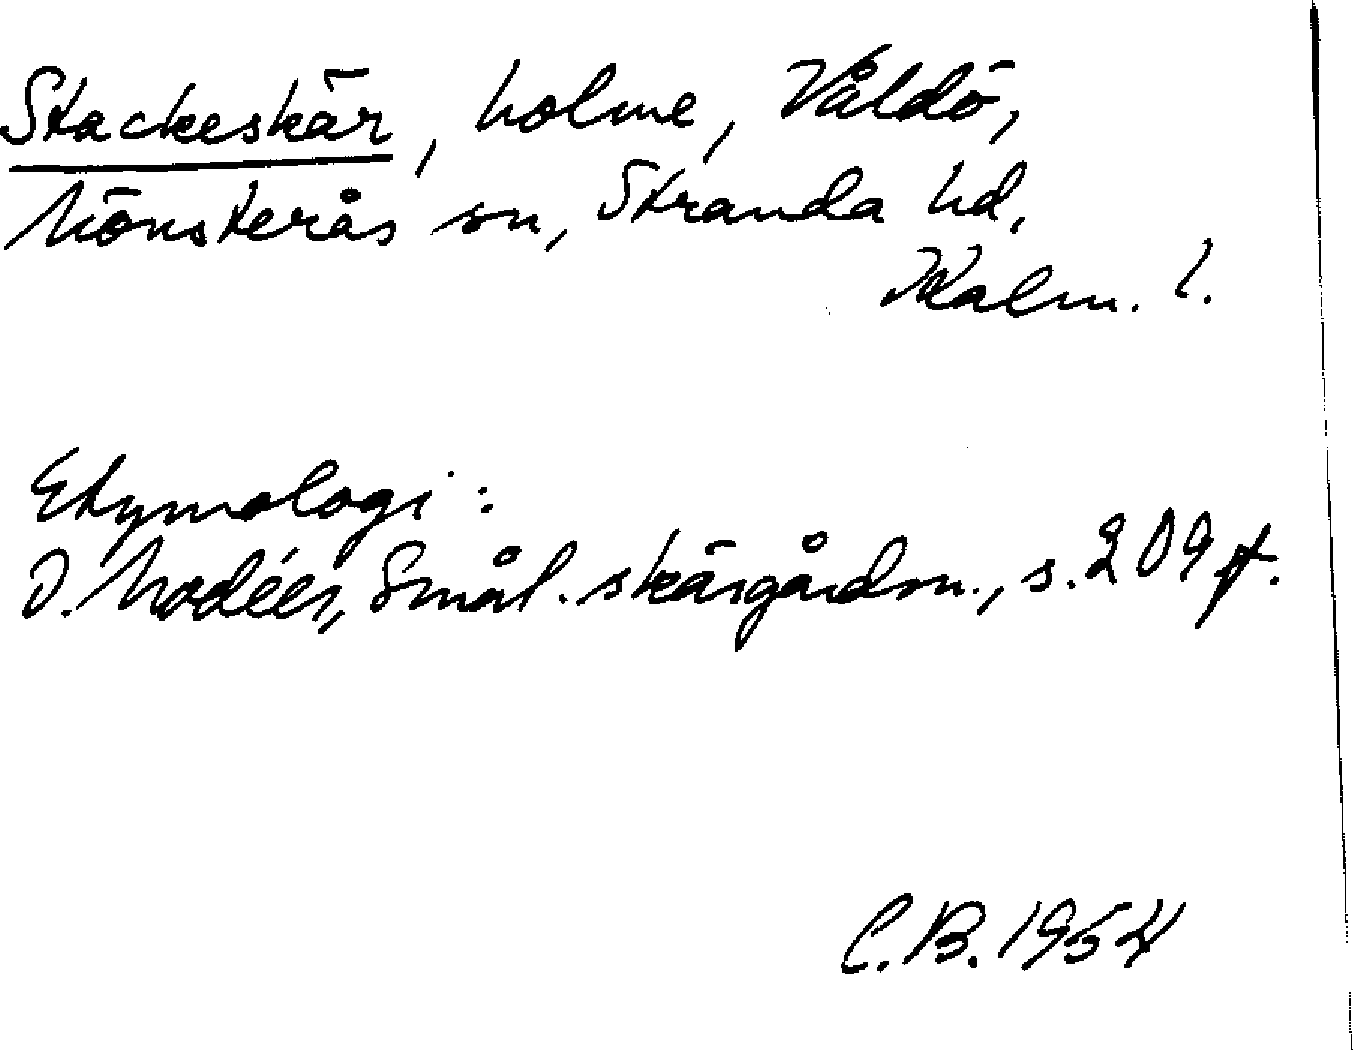 Stackeskär, holme, Våldö,
Mönsterås sn, Stranda hd,
Kalm. l.
Etymologi:
D. Modéer, Smål. skärgårdsn., s. 209 f.
C.B. 1954